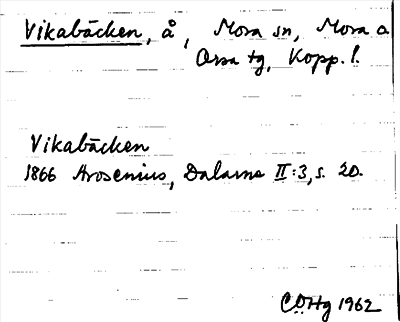 Vikabäcken, å, Mora sn, Mora o.
Orsa tg, Kopp. l.
Vikabäcken
1866 Arosenius, Dalarne II:3, s. 20.
CÖHg 1962